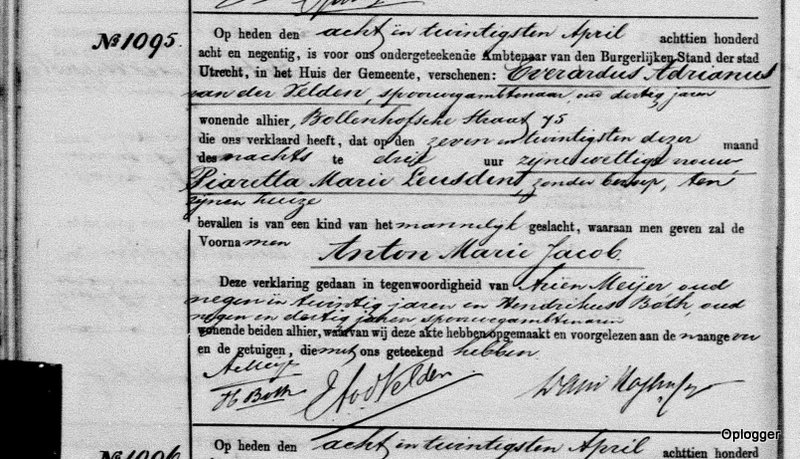 No 1095.
Op heden den acht en twintigsten April achttien honderd
acht en negentig, is voor ons ondergeteekende Ambtenaar van den Burgerlijken Stand der stad
Utrecht, in het Huis der Gemeente, verschenen: Everardus Adrianus
van der Velden, spoorwegambtenaar, oud dertig jaren
wonende alhier, Bollenhofsche Straat 75
die ons verklaard heeft, dat op den zeven en twintigsten dezer maand
des nachts te drie uur zijne wettige vrouw
Piaretta Marie Leusdent, zonder beroep, ten
zijnen huize
bevallen is van een kind van het mannelijk geslacht, waaraan men geven zal de
Voornamen Anton Marie Jacob.
Deze verklaring gedaan in tegenwoordigheid van Arien Meijer oud
negen en twintig jaren en Hendrikus Both, oud
negen en dertig jaren spoorwegambtenaren
wonende beiden alhier, waarvan wij deze akte hebben opgemaakt en voorgelezen aan de aangever
en de getuigen, die met ons geteekend hebben.
A Meijer
H Both vd Velden
No 1096.
Op heden den acht en twintigsten April achttien honderd
Oplogger